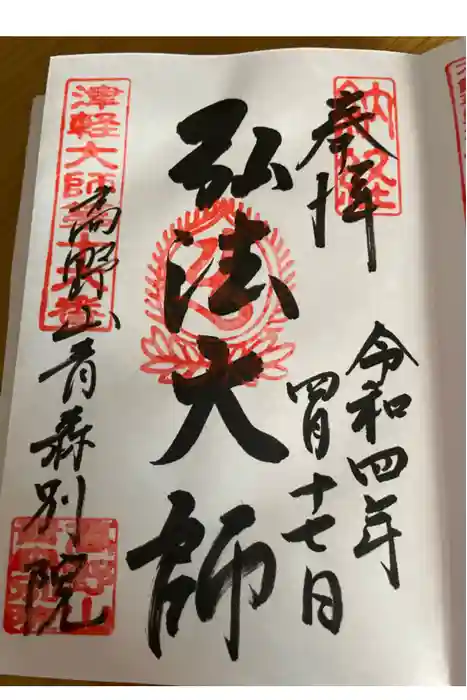 奉拝
令和四年
四月十七日
弘法大師
高野山青森別院
納経
津軽大師第十
高野山